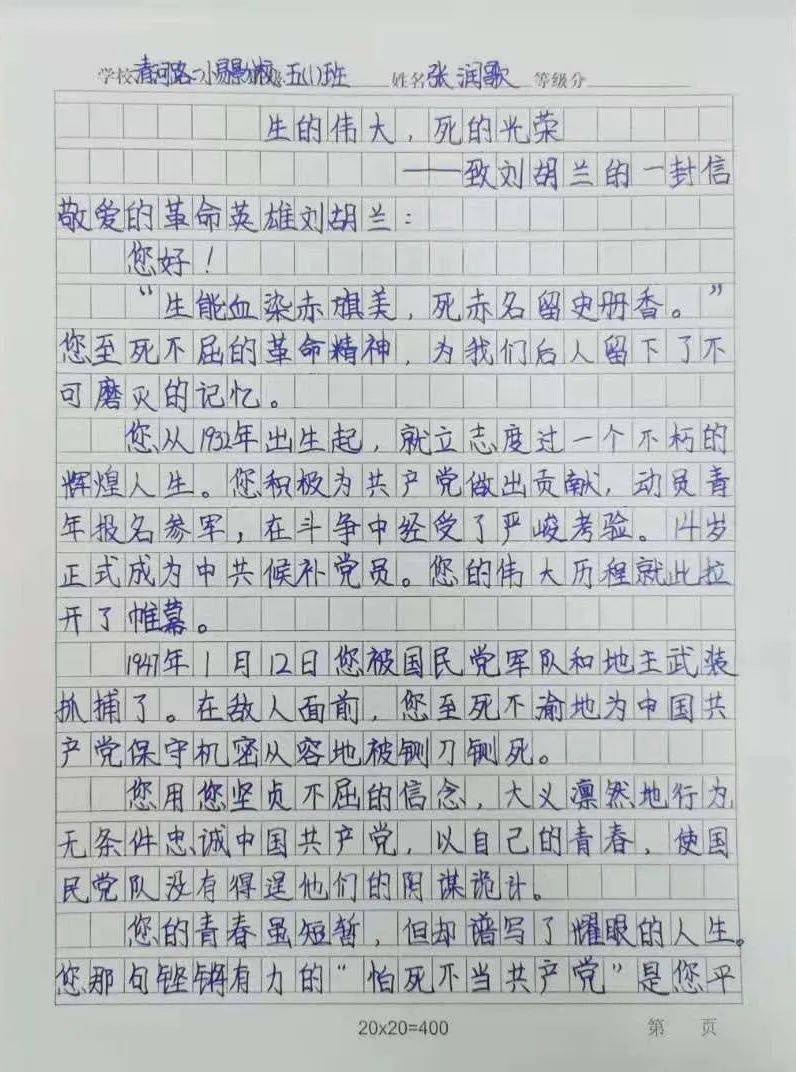 学校清河路二小易景分校 五(1)班 姓名张润歌 等级分
生的伟大，死的光荣
——致刘胡兰的一封信
敬爱的革命英雄刘胡兰：
您好！
“生能血染赤旗美，死赤名留史册香。”
您至死不屈的革命精神，为我们后人留下了不
可磨灭的记忆。
您从1932年出生起，就立志度过一个不朽的
辉煌人生。您积极为共产党做出贡献，动员青
年报名参军，在斗争中经受了严峻考验。14岁
正式成为中共候补党员。您的伟大历程就此拉
开了帷幕。
1947年1月12日您被国民党军队和地主武装
抓捕了。在敌人面前，您至死不渝地为中国共
产党保守机密从容地被铡刀铡死。
您用您坚贞不屈的信念，大义凛然地行为
无条件忠诚中国共产党，以自己的青春，使国
民党队没有得逞他们的阴谋诡计。
您的青春虽短暂，但却谱写了耀眼的人生。
您那句铿锵有力的“怕死不当共产党”是您平
20x20=400 第 页